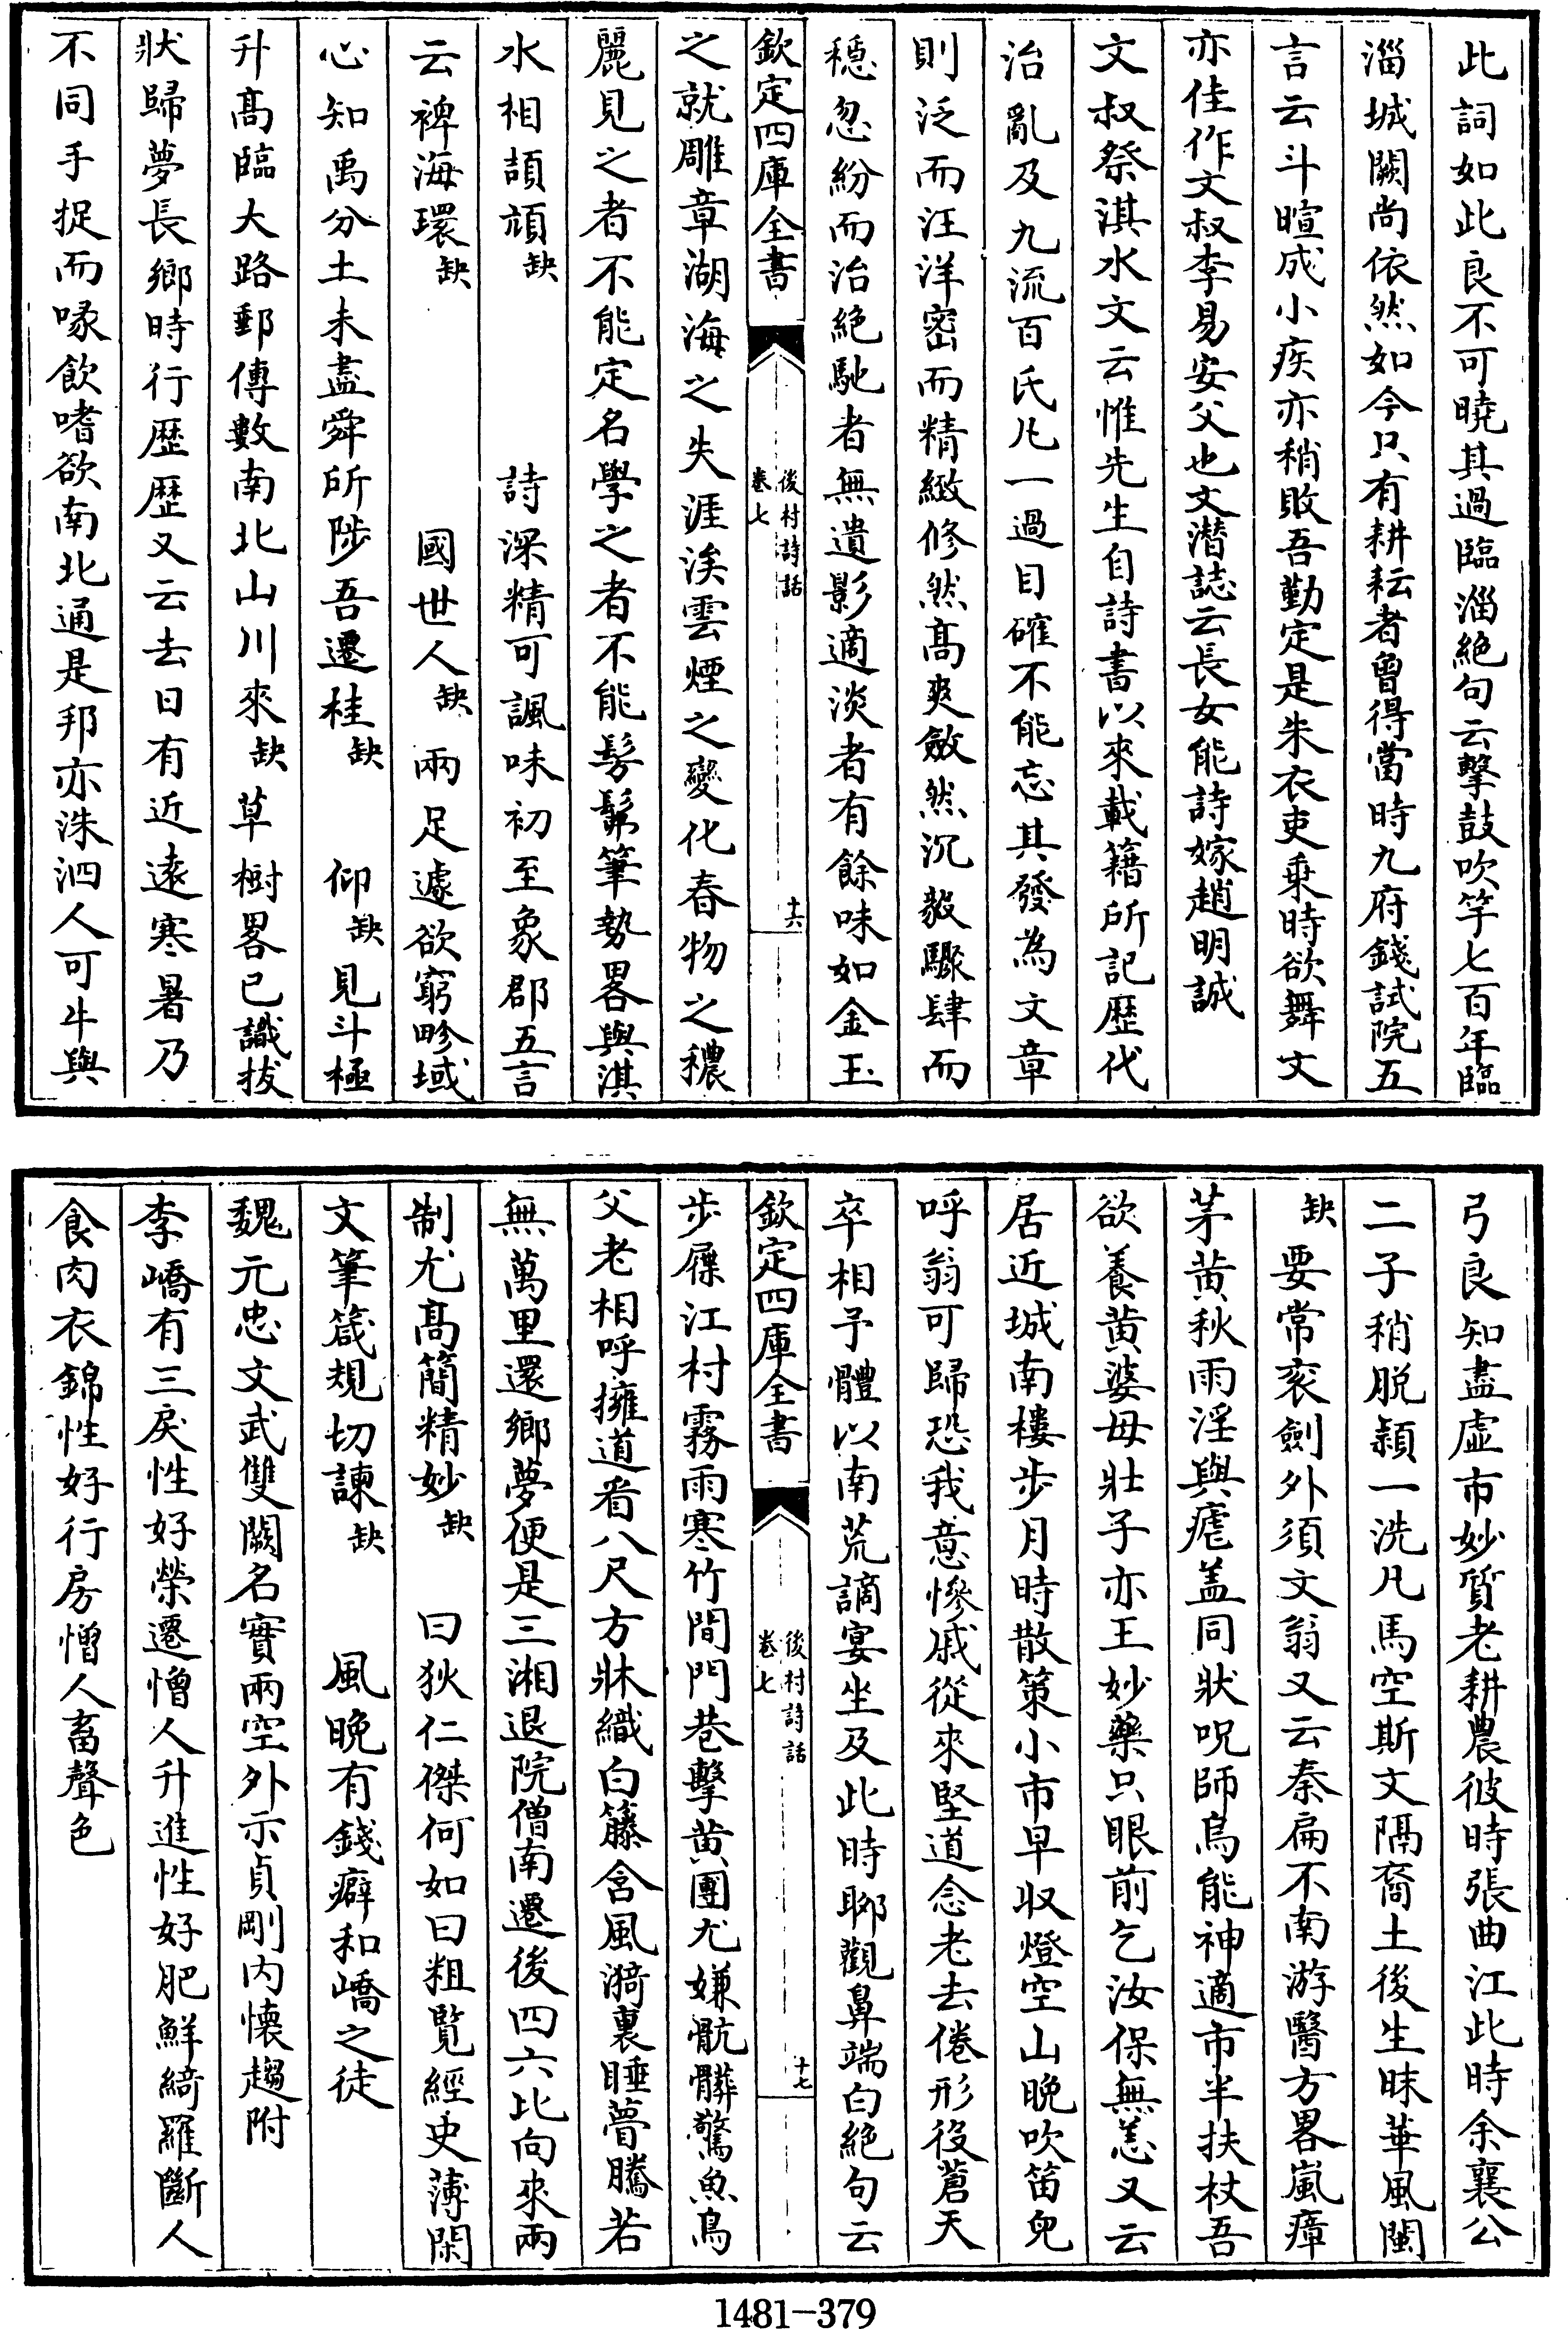 此詞如此良不可曉其過臨淄絶句云擊鼓吹竽七百年臨
淄城闕尚依然如今只有耕耘者曾得當時九府錢試院五
言云斗暄成小疾亦稍敗吾勤定是朱衣吏乗時欲舞文
亦佳作文叔李易安父也文潛誌云長女能詩嫁趙明誠
文叔祭淇水文云惟先生自詩書以來載籍所記歴代
治亂及九流百氏凡一過目確不能忘其發為文章
則泛而汪洋密而精緻修然髙爽斂然沉毅驟肆而
穏忽紛而治絶馳者無遺影適淡者有餘味如金玉
欽定四庫全書
後村詩話
卷七
十六
之就雕章湖海之失涯涘雲煙之變化春物之穠
麗見之者不能定名學之者不能髣髴筆勢畧與淇
水相頡頏缺 詩深精可諷味初至象郡五言
云裨海環缺 國世人缺 兩足遽欲窮畛域
心知禹分土未盡舜所陟吾遷桂缺 仰缺見斗極
升髙臨大路郵傳數南北山川來缺草樹畧已識拔
狀歸夢長鄉時行歴歴又云去日有近遠寒暑乃
不同手捉而喙飲嗜欲南北通是邦亦洙泗人可牛與
弓良知盡虚市妙質老耕農彼時張曲江此時余襄公
二子稍脱穎一洗凡馬空斯文隔裔土後生昧華風閩
缺要常衮劍外須文翁又云秦扁不南游醫方畧嵐瘴
茅黄秋雨淫與瘧盖同狀呪師烏能神適市半扶杖吾
欲養黄婆母壯子亦王妙藥只眼前乞汝保無恙又云
居近城南樓步月時散策小市早收燈空山晚吹笛兒
呼翁可歸恐我意慘戚從來堅道念老去倦形役蒼天
卒相予體以南荒謫宴坐及此時聊觀鼻端白絶句云
欽定四庫全書
後村詩話
卷七
十七
步屧江村霧雨寒竹間門巷擊黄團尤嫌骯髒驚魚鳥
父老相呼擁道看八尺方牀織白籐含風漪裏睡瞢騰若
無萬里還鄉夢便是三湘退院僧南遷後四六比向來兩
制尤髙簡精妙缺 曰狄仁傑何如曰粗覧經史薄閑
文筆箴規切諫缺 風晚有錢癖和嶠之徒
魏元忠文武雙闕名實兩空外示貞剛内懷趨附
李嶠有三戾性好榮遷憎人升進性好肥鮮綺羅斷人
食肉衣錦性好行房憎人畜聲色
1481-379